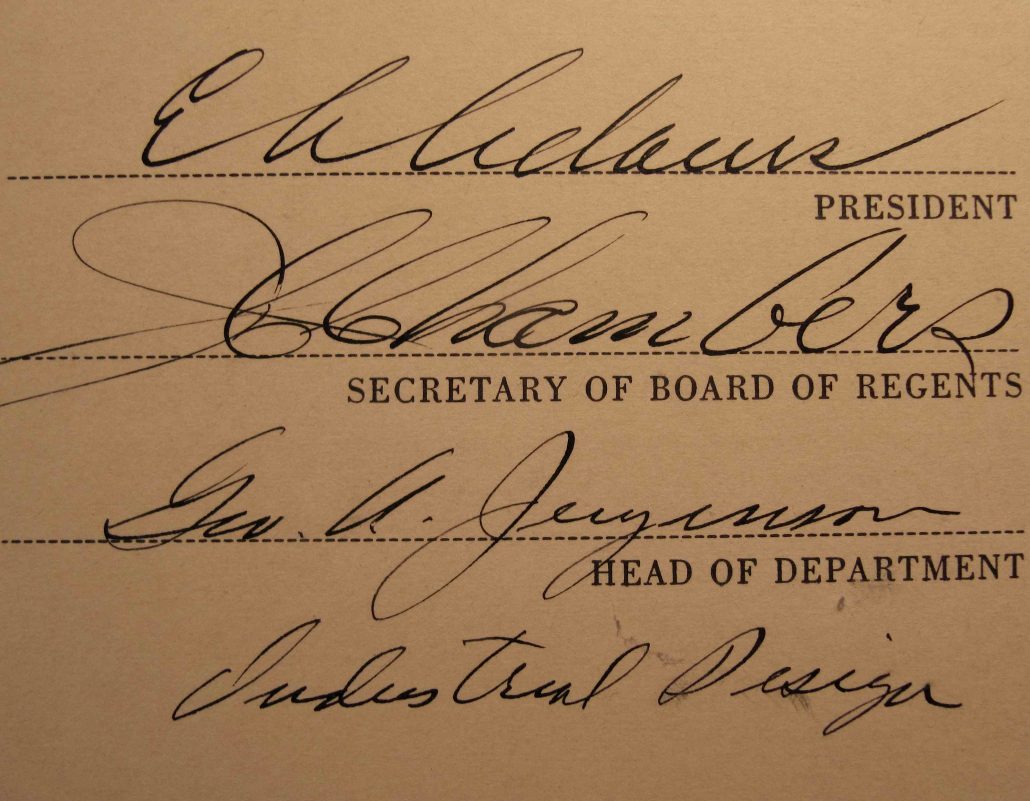 E A Adams
PRESIDENT
J C Chambers
SECRETARY OF BOARD OF REGENTS
Geo. A. Jergenson
HEAD OF DEPARTMENT
Industrial Design